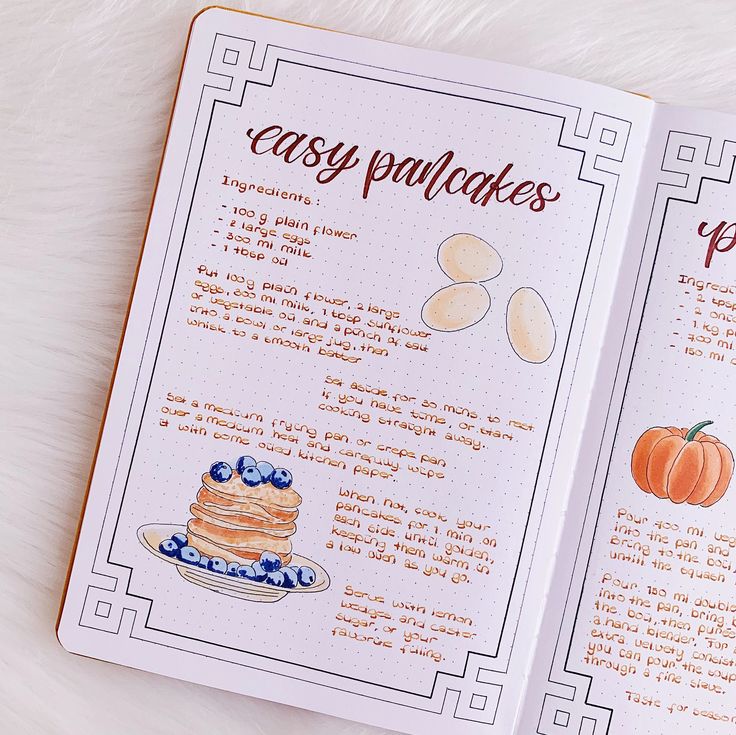 easy pancakes
Ingredients:
- 100 g plain flower
- 2 large eggs
- 300 ml milk
- 1 tbsp oil
Put 100g plain flower, 2 large
eggs, 300 ml milk, 1 tbsp sunflower
or vegetable oil and a pinch of salt
into a bowl or large jug, then
whisk to a smooth batter
Set aside for 30 mins to rest
if you have time, or start
cooking straight away.
Set a medium frying pan or crepe pan
over a medium heat and carefully wipe
it with some oiled kitchen paper.
When hot, cook your
pancakes for 1 min on
each side until golden,
keeping them warm in
a low oven as you go.
Serve with lemon
wedges and caster
sugar, or your
favorite filling.
p
Ingredi
- 2 tbsp
- 2 onio
- 1 kg p
- 700 ml
- 150 ml d
Pour 700 ml veg
into the pan and
bring to the boil,
untill the squash
Pour 150 ml double
into the pan, bring b
the boil, then puree
a hand blender. For
extra velvety consist
you can pour the soup
through a fine sieve.
Taste for season